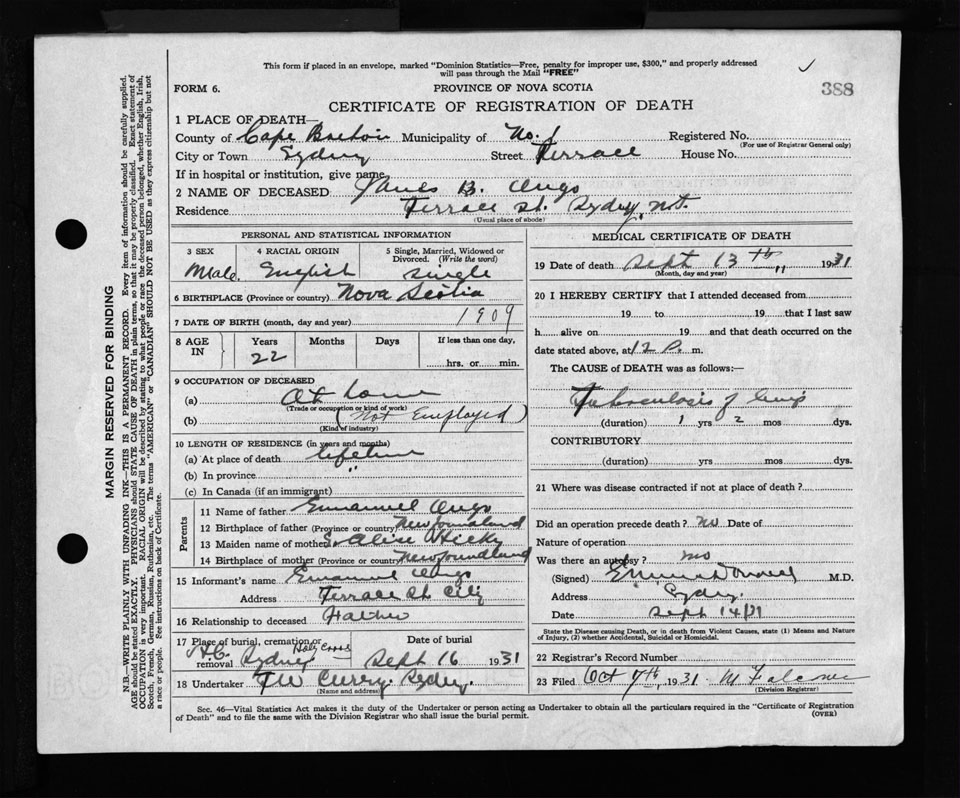 This form if placed in an envelope, marked "Dominion Statistics—Free, penalty for improper use, $300," and properly addressed
will pass through the Mail "FREE"
388
FORM 6.
PROVINCE OF NOVA SCOTIA
CERTIFICATE OF REGISTRATION OF DEATH
1 PLACE OF DEATH—
County of Cape Breton Municipality of No. 1 Registered No.
(For use of Registrar General only)
City or Town Sydney Street Terrace House No.
If in hospital or institution, give name
2 NAME OF DECEASED James B.
Residence Terrace St. Sydney, N.S.
(Usual place of abode)
PERSONAL AND STATISTICAL INFORMATION
3 SEX 4 RACIAL ORIGIN 5 Single, Married, Widowed or Divorced. (Write the word)
Male English Single
6 BIRTHPLACE (Province or country) Nova Scotia
7 DATE OF BIRTH (month, day and year) 1909
8 AGE IN Years Months Days If less than one day,
22 hrs. or min.
9 OCCUPATION OF DECEASED
(a) At Home
(Trade or occupation or kind of work)
(b) (Not Employed)
(Kind of industry)
10 LENGTH OF RESIDENCE (in years and months)
(a) At place of death lifetime
(b) In province "
(c) In Canada (if an immigrant)
Parents
11 Name of father Emmanuel
12 Birthplace of father (Province or country) Newfoundland
13 Maiden name of mother Alice Hicky
14 Birthplace of mother (Province or country) Newfoundland
15 Informant's name Emanuel
Address Terrace St. City
16 Relationship to deceased Father
17 Place of burial, cremation or removal Sydney Holy Cross
Date of burial
Sept 16 1931
18 Undertaker F W Curry. Sydney.
(Name and address)
MEDICAL CERTIFICATE OF DEATH
19 Date of death Sept 13th " 1931
(Month, day and year)
20 I HEREBY CERTIFY that I attended deceased from
19 to 19 that I last saw
h alive on 19 and that death occurred on
date stated above, at 12 P. m.
The CAUSE of DEATH was as follows:—
Tuberculosis of lungs
(duration) 1 yrs 2 mos dys.
CONTRIBUTORY
(duration) yrs mos dys.
21 Where was disease contracted if not at place of death?
Did an operation precede death? no Date of
Nature of operation
Was there an autopsy? no
(Signed) M.D.
Address Sydney.
Date Sept 14/31
State the Disease causing Death, or in death from Violent Causes, state (1) Means and Nature
of Injury, (2) whether Accidental, Suicidal or Homicidal.
22 Registrar's Record Number
23 Filed Oct 7th, 1931
(Division Registrar)
Sec. 46—Vital Statistics Act makes it the duty of the Undertaker or person acting as Undertaker to obtain all the particulars required in the "Certificate of Registration
of Death" and to file the same with the Division Registrar who shall issue the burial permit.
(OVER)
MARGIN RESERVED FOR BINDING
N.B.—WRITE PLAINLY WITH UNFADING INK—THIS IS A PERMANENT RECORD. Every item of information should be carefully supplied.
AGE should be stated EXACTLY. PHYSICIANS should STATE CAUSE OF DEATH in plain terms, so that it may be properly classified. Exact statement of
OCCUPATION is very important. RACIAL ORIGIN will be described by stating to what people or race the deceased person belonged, whether English, Irish,
Scotch, French, German, Russian, Ruthenian, etc. The terms "AMERICAN" or "CANADIAN" SHOULD NOT BE USED as they express citizenship but not
a race or people. See instructions on back of Certificate.